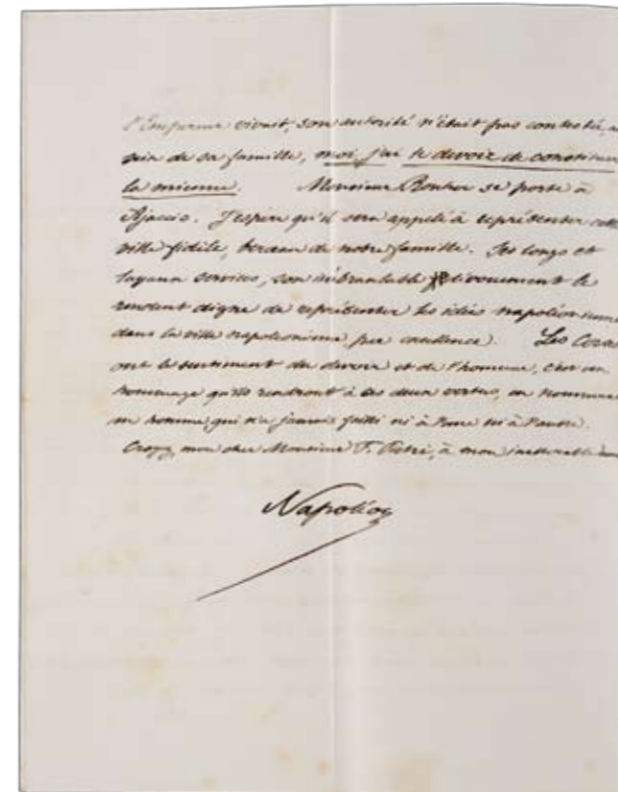 l'Empereur vivait, son autorité n'était pas contestée, a
sein de sa famille, moi, j'ai le devoir de constituer
la mienne. Monsieur Rouher se porte à
Ajaccio. J'espère qu'il sera appelé à représenter cette
ville fidèle, berceau de notre famille. Ses longs et
loyaux services, son inébranlable dévouement le
rendent digne de représenter les idées napoléonienne
dans la ville napoléonienne par excellence. Les Corse
ont le sentiment du devoir et de l'honneur, c'est un
hommage qu'ils rendront à ces deux vertus, en nommant
un homme qui n'a jamais failli ni à l'une ni à l'autre.
Croyez, mon cher Monsieur F. Pietri, à mon inaltérable
Napoléon